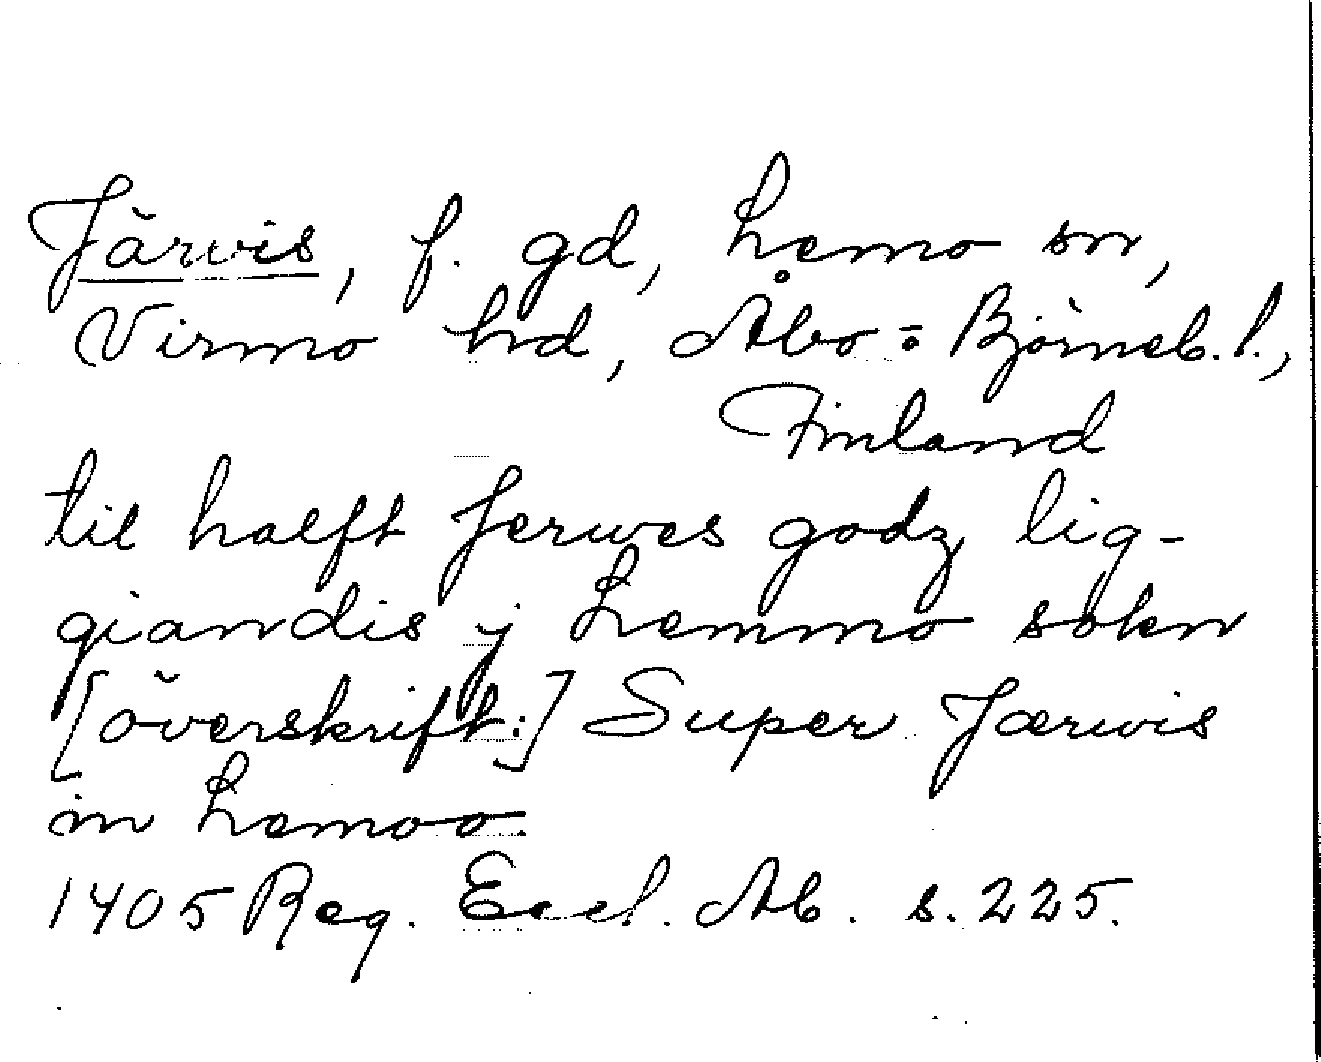 Järvis, f. gd, Lemo sn,
Virmo hd, Åbo-Björneb. l.,
Finland
til halft Jerwes godz lig-
giandis j Lemmo sokn
[överskrift:] Super Jærwis
in Lemoo.
1405 Reg. Eccl. Ab. s. 225.